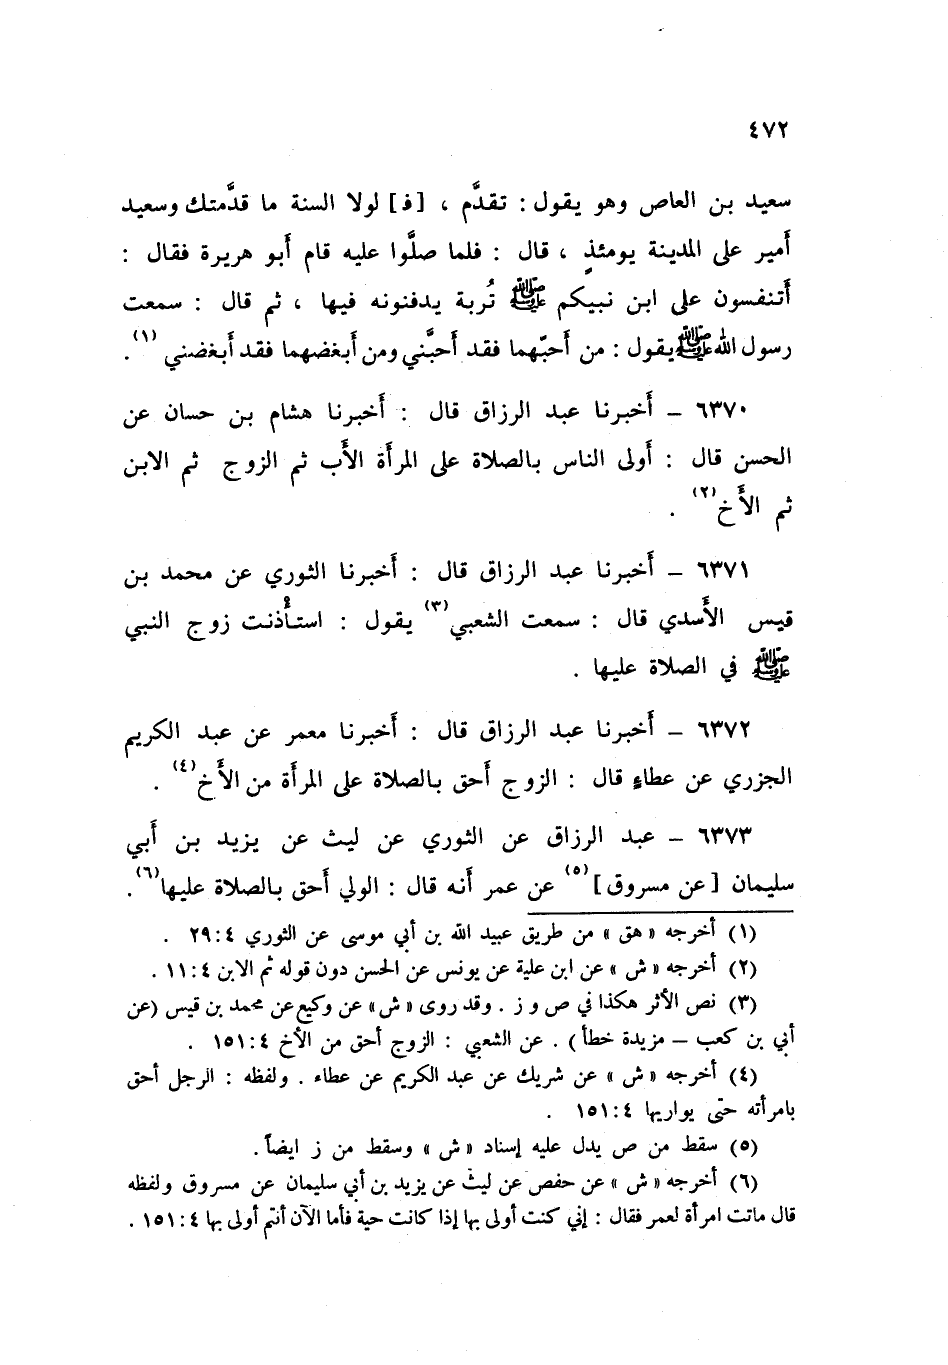 ٤٧٢
سعيد بن العاص وهو يقول : تقدَّم ، [ فـ ] لولا السنة ما قدَّمتك وسعيد
أَمير على المدينة يومئذٍ ، قال : فلما صلَّوا عليه قام أَبو هريرة فقال :
أَتنفسون على ابن نبيكم ﷺ تُربة يدفنونه فيها ، ثم قال : سمعت
رسول الله ﷺ يقول : من أَحبّهما فقد أَحبَّني ومن أَبغضهما فقد أَبغضني (١) .
٦٣٧٠ – أَخبرنا عبد الرزاق قال : أَخبرنا هشام بن حسان عن
الحسن قال : أَولى الناس بالصلاة على المرأَة الأَب ثم الزوج ثم الابن
ثم الأَخ (٢) .
٦٣٧١ – أَخبرنا عبد الرزاق قال : أَخبرنا الثوري عن محمد بن
قيس الأَسدي قال : سمعت الشعبي (٣) يقول : استأْذنت زوج النبي
ﷺ في الصلاة عليها .
٦٣٧٢ – أَخبرنا عبد الرزاق قال : أَخبرنا معمر عن عبد الكريم
الجزري عن عطاءٍ قال : الزوج أَحق بالصلاة على المرأَة من الأَخ (٤) .
٦٣٧٣ – عبد الرزاق عن الثوري عن ليث عن يزيد بن أَبي
سليمان [ عن مسروق ] (٥) عن عمر أَنه قال : الولي أَحق بالصلاة عليها (٦) .
(١) أخرجه « هق » من طريق عبيد الله بن أبي موسى عن الثوري ٤ : ٢٩ .
(٢) أخرجه « ش » عن ابن علية عن يونس عن الحسن دون قوله ثم الابن ٤ : ١١ .
(٣) نص الأثر هكذا في ص و ز . وقد روى « ش » عن وكيع عن محمد بن قيس (عن
أبي بن كعب – مزيدة خطأ ) . عن الشعبي : الزوج أحق من الأخ ٤ : ١٥١ .
(٤) أخرجه « ش » عن شريك عن عبد الكريم عن عطاء . ولفظه : الرجل أحق
بامرأته حتّى يواريها ٤ : ١٥١ .
(٥) سقط من ص يدل عليه إسناد « ش » وسقط من ز ايضاً .
(٦) أخرجه « ش » عن حفص عن ليث عن يزيد بن أبي سليمان عن مسروق ولفظه
قال ماتت امرأة لعمر فقال : إني كنت أولى بها إذا كانت حية فأما الآن أنتم أولى بها ٤ : ١٥١ .